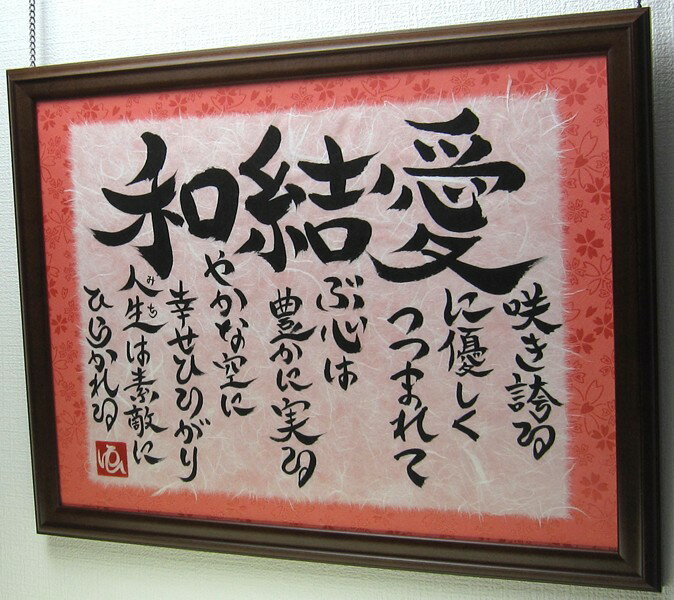 愛結和
咲き誇る
に優しく
つつまれて
ぶ心は
豊かに実る
やかな空に
幸せひろがり
みち
人生は素敵に
ひらかれる